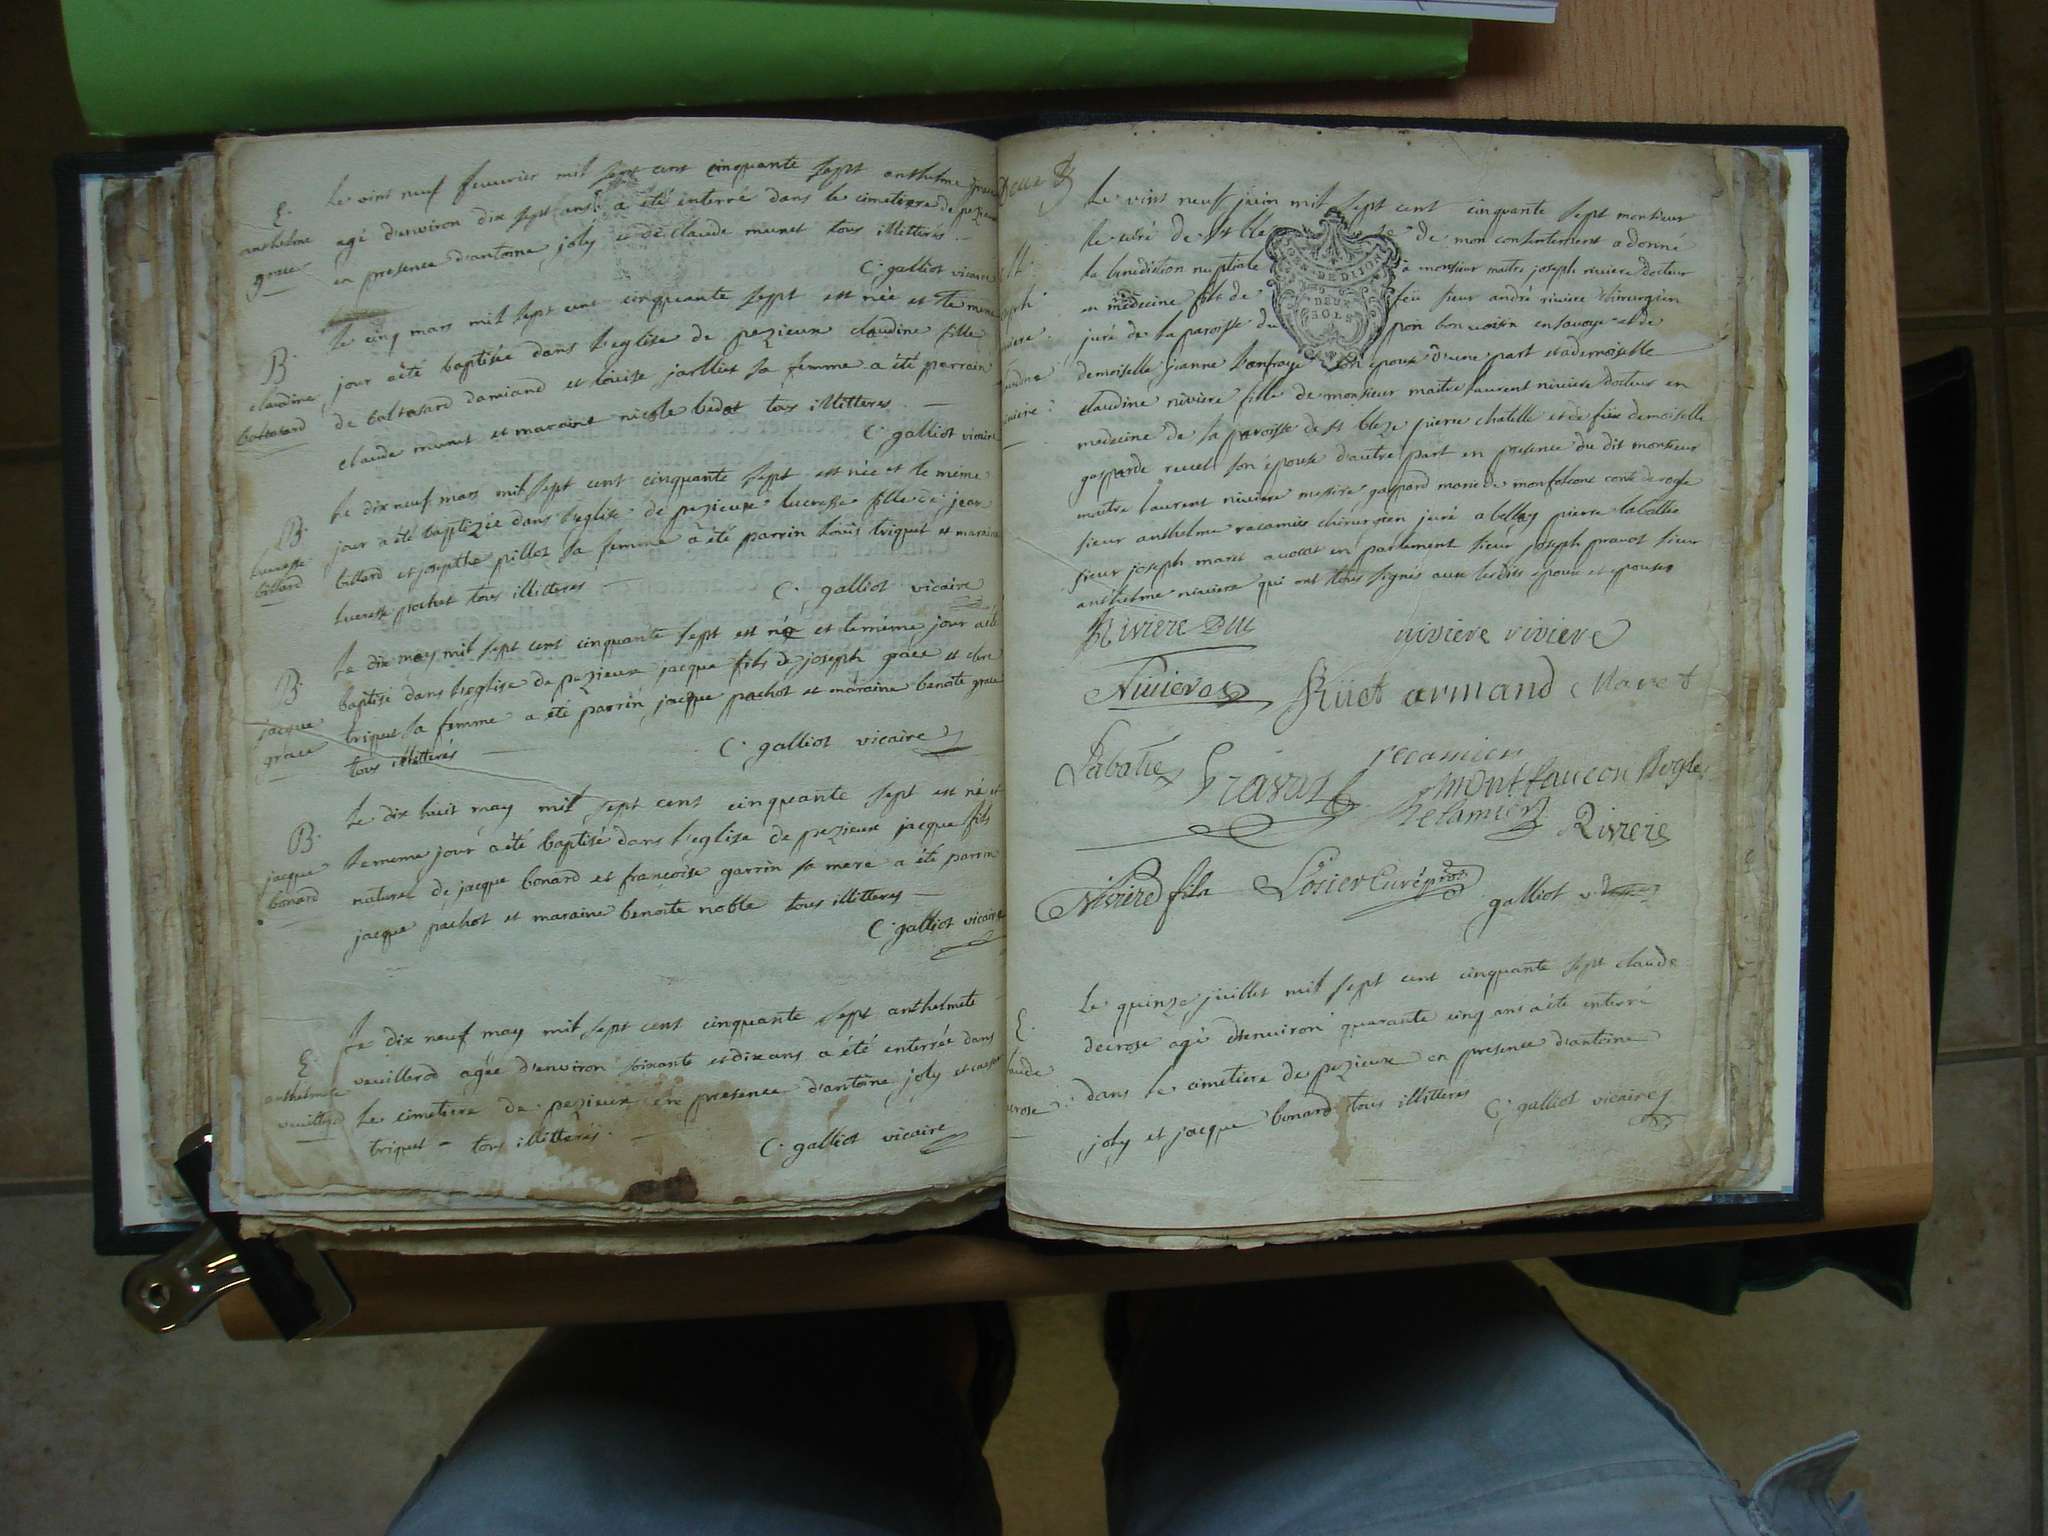 E.
anthelme
grace
Le vint neuf feuvrier mil sept cent cinquante sept anthelme grace
agé d'environ dix sept ans a été enterré dans le cimetierre de pezieux
en presence d'antoine joly et de claude munet tous illitterés
C. galliot vicaire
B.
claudine
baltasard
Le cinq mars mil sept cent cinquante sept est née et le meme
jour a été baptisée dans l'eglise de pezieux claudine fille
de baltasard damiand et louise jarlliet sa femme a été parrain
claude munet et maraine nicole bedat tous illitteres
C. galliot vicaire
B.
lucresse
billard
Le dix neuf mars mil sept cent cinquante sept est née et le même
jour a été baptizée dans l'eglise de pezieux lucresse fille de jean
billard et josephte pillot sa femme a été parrin louis triquet et maraine
lucresse pachot tous illitteres
C. galliot vicaire
B.
jacque
grace
Le dix may mil sept cent cinquante sept est né et le même jour a été
baptisé dans l'eglise de pezieux jacque fils de joseph grace et
triquet sa femme a été parrin jacque pachot et maraine benoite grace
tous illitterés
C. galliot vicaire
B.
jacque
bonard
Le dix huit may mil sept cent cinquante sept est né et
le meme jour a été baptisé dans l'eglise de pezieux jacque fils
naturel de jacque bonard et françoise garrin sa mere a été parrin
jacque pachot et maraine benoite noble tous illitteres
C. galliot vicaire
E.
anthelmete
veuillerod
Le dix neuf may mil sept cent cinquante sept anthelmete
veuillerod agée d'environ soixante et dix ans a été enterrée dans
le cimetiere de pezieux en presence d'antoine joly et
triquet tous illitterés
C. galliot vicaire
Le vint neuf juin mil sept cent cinquante sept monsieur
le curé de st ble de mon consentement a donné
la benediction nuptiale a monsieur maitre joseph riviere docteur
en médecine fils de feü sieur andré riviere chirurgien
juré de la paroisse du pon bonvoisin en savoye et de
demoiselle jeanne son epouse d'une part et a demoiselle
claudine niviere fille de monsieur maitre laurent niviere docteur en
medecine de la paroisse de st bleze pierre chatelle et de feüe demoiselle
gasparde son épouse d'autre part en presence du dit monsieur
maitre laurent niviere messire gaspard marie de monfalcone conte de
sieur anthelme racamier chirurgien juré a belley pierre labattie
sieur joseph maret avocat en parlement sieur joseph pravat sieur
anthelme niviere qui ont tous signés avec lesdits epoux et epouses
GEN. DE DIJON
DEUX
SOLS
Riviere niviere riviere
Niviere Rüet armand Maret
Labatie Pravaz recamier
montfaucon
Recamier Riviere
Niviere fils Losier Curé galliot
E.
Le quinze juillet mil sept cent cinquante sept claude
decrose agé d'environ quarante cinq ans a été enterré
dans le cimetiere de pezieux en presence d'antoine
joly et jacque bonard tous illitteres
C. galliot vicaire